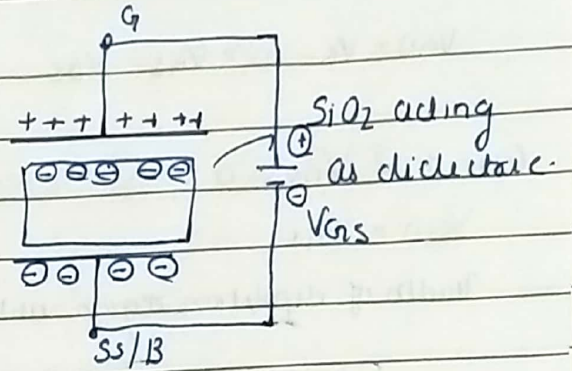 G
+ + + + + ++
SiO2 acting
⊕
⊖ ⊖ ⊖ ⊖ ⊖ as dielectric.
⊖
VGS
⊖ ⊖ ⊖ ⊖
SS/B